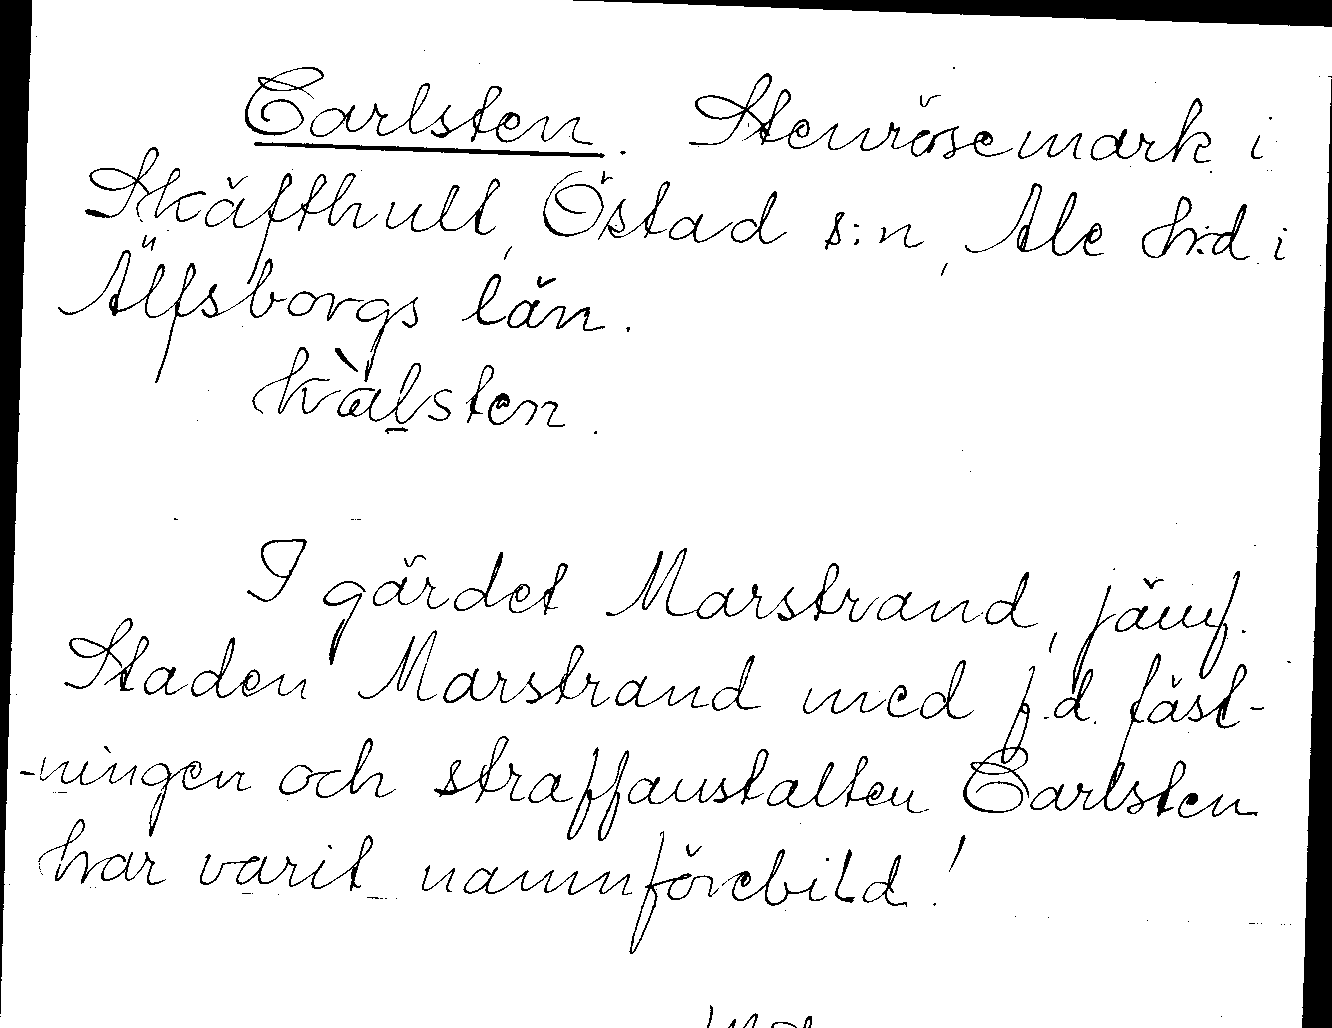 Carlsten. Stenrösemark i
Skäfthult, Östad s:n, Ale h:d i
Älfsborgs län.
kàlsten.
I gärdet Marstrand, jämf.
Staden Marstrand med f.d. fäst-
-ningen och straffanstalten Carlsten
har varit namnförebild!